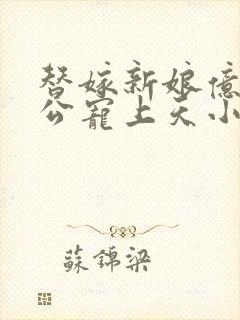 替嫁新娘億
公寵上天小
蘇錦梁